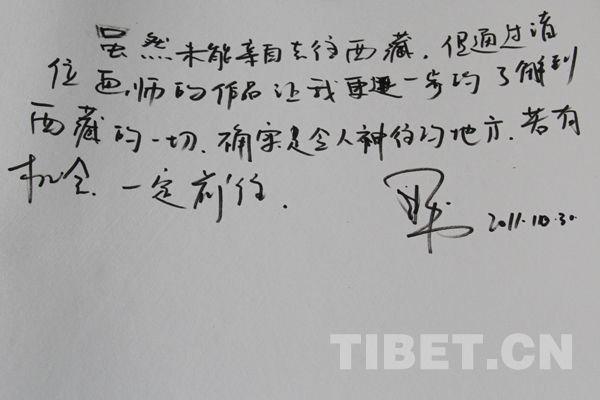 虽然未能亲自去往西藏，但通过诸
位画师的作品让我更进一步的了解到
西藏的一切、确实是令人神往的地方、若有
机会、一定前往．
2011.10.30.
TIBET.CN